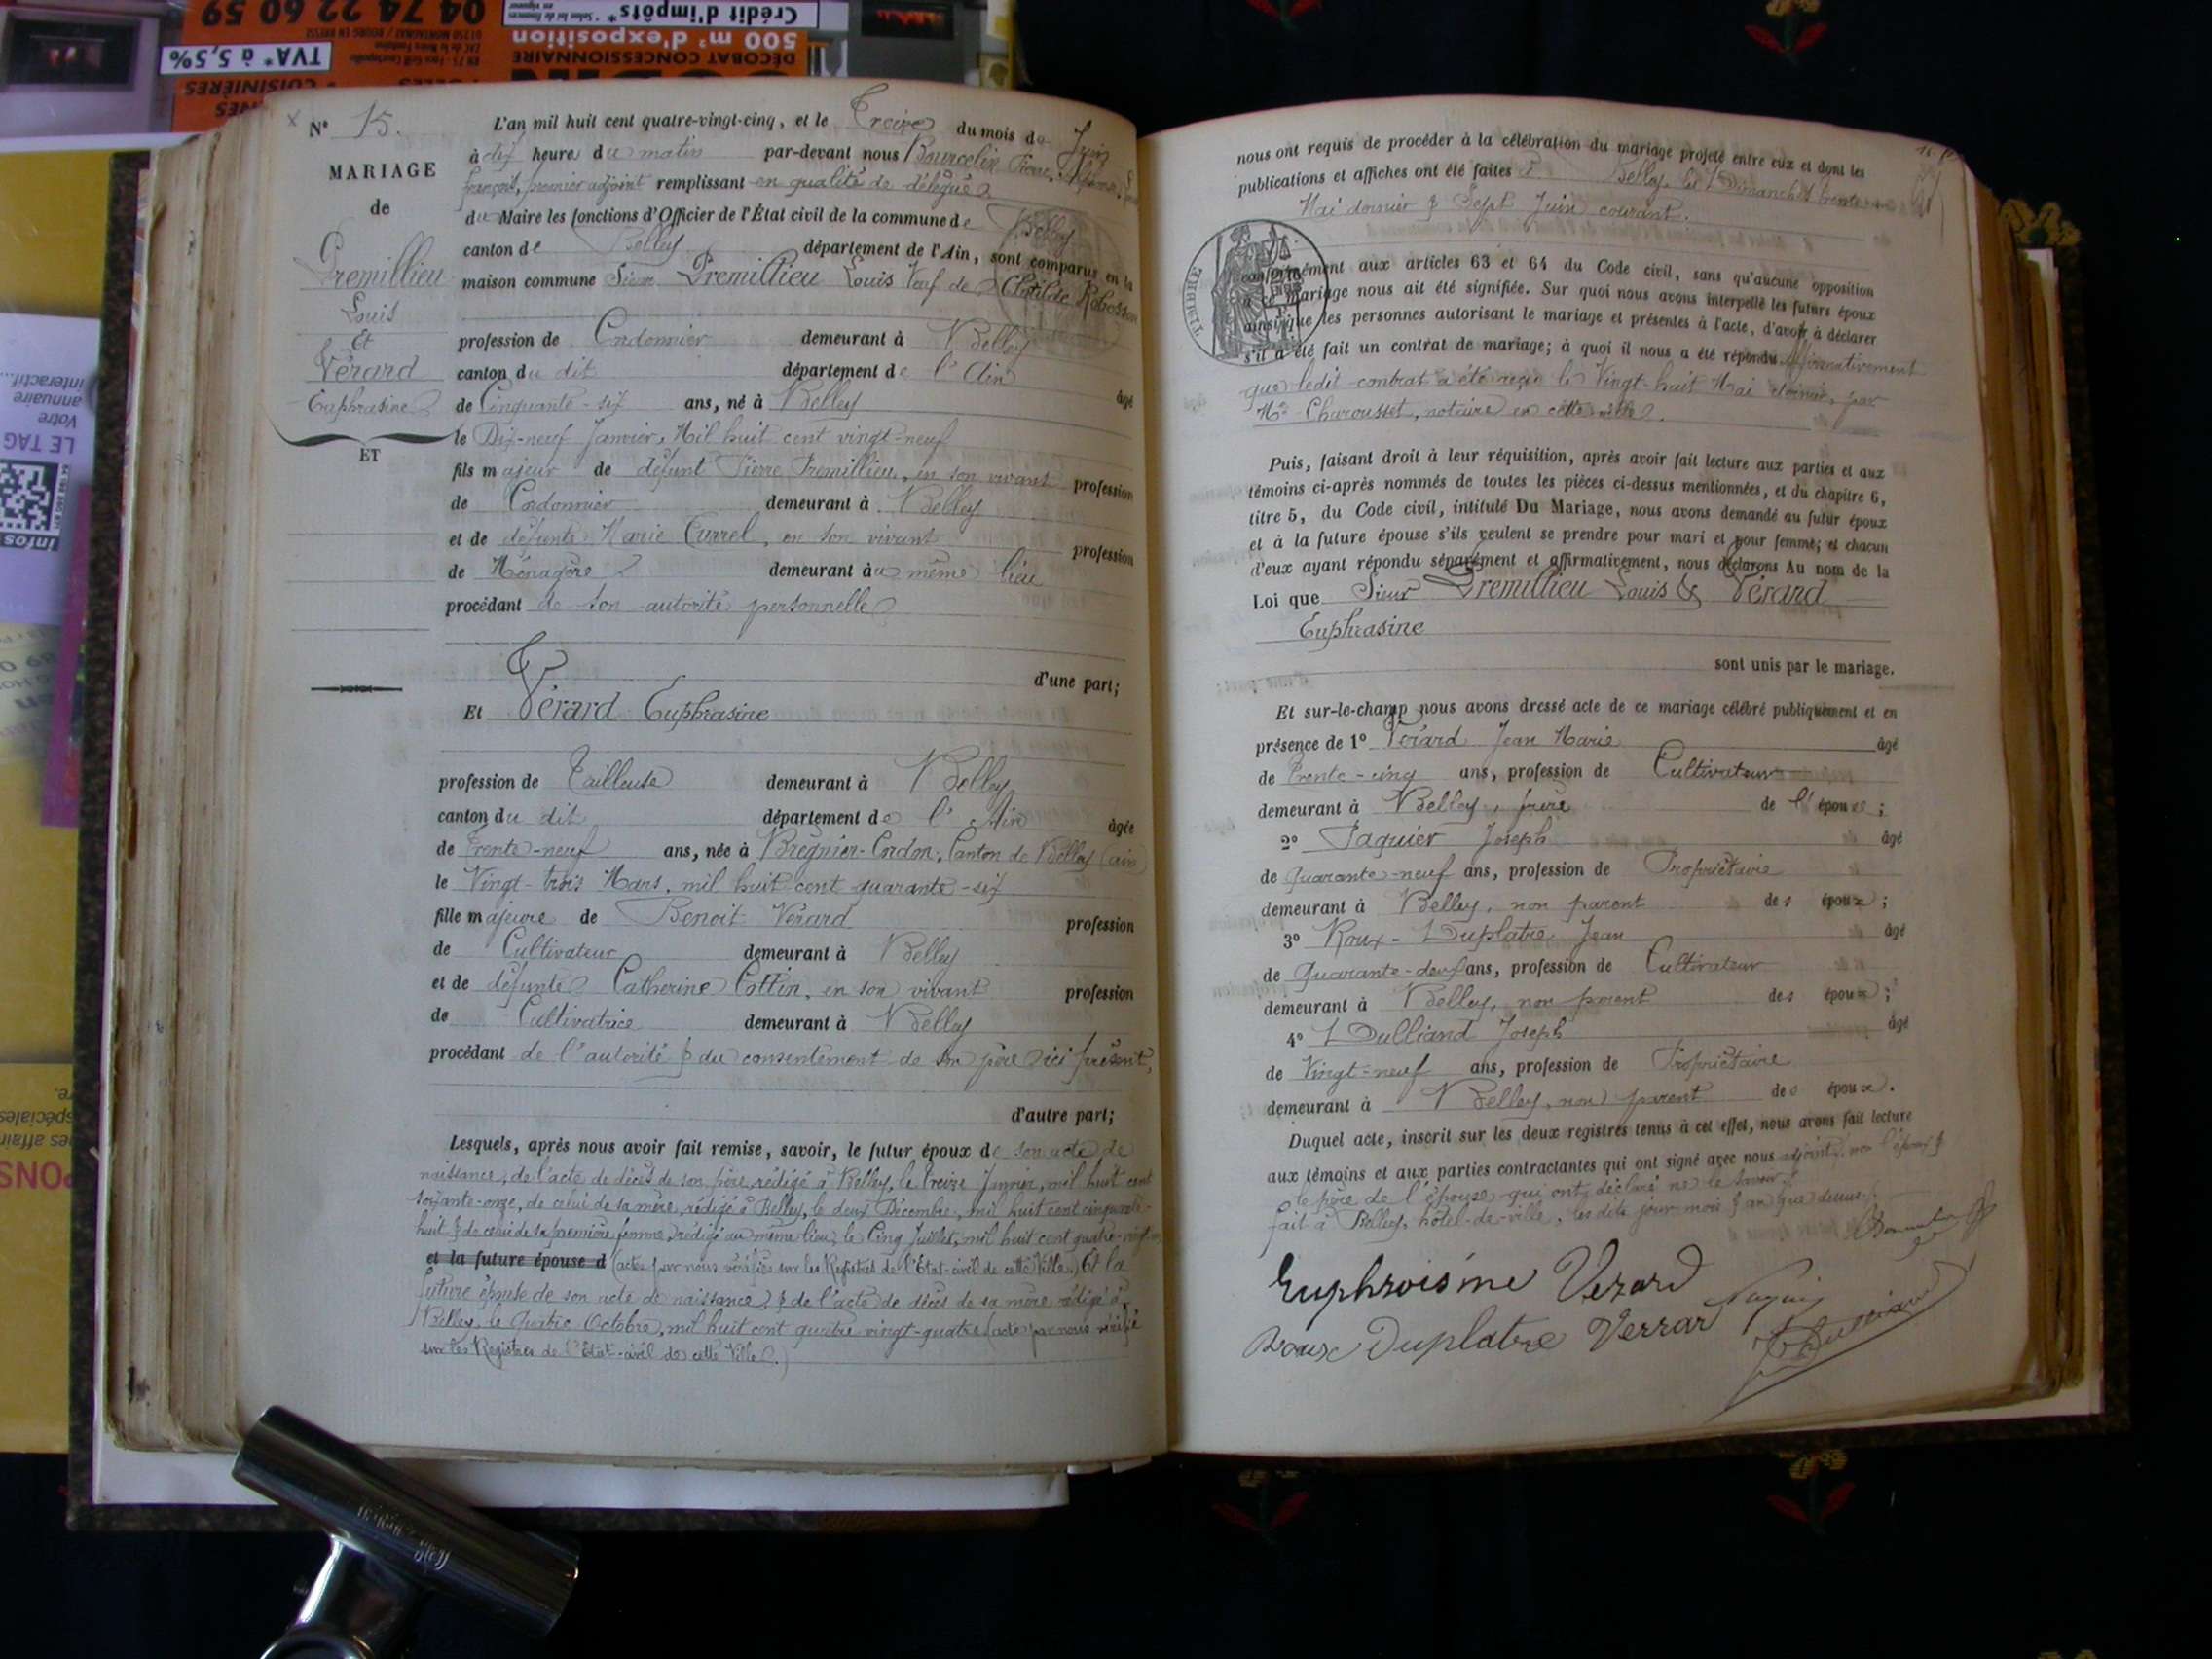 04 74 22 60 59
01250 MONTAGNAT / BOURG EN BRESSE
TVA* à 5,5%
CUISINIÈRES
Crédit d'impôts*
500 m² d'exposition
DÉCOBAT CONCESSIONNAIRE
interactif...
annuaire
Votre
LE TAG
infos
N° 15.
MARIAGE
de
Premillieu
Louis
Et
Vérard
Euphrasine
ET
L'an mil huit cent quatre-vingt-cinq, et le Treize du mois de Juin
à dix heure du matin par-devant nous Bourcelin Pierre
François, premier adjoint remplissant en qualité de délégué
du Maire les fonctions d'Officier de l'État civil de la commune de Belley
canton de Belley département de l'Ain, sont comparus en la
maison commune Sieur Premillieu Louis Veuf de Clotilde
profession de Cordonnier demeurant à Belley
canton du dit département de l'Ain âgé
de Cinquante-six ans, né à Belley
le Dix-neuf Janvier, Mil huit cent vingt-neuf
fils majeur de défunt Pierre Premillieu, en son vivant profession
de Cordonnier demeurant à Belley
et de défunte Marie Currel, en son vivant profession
de Ménagère demeurant au même lieu
procédant de son autorité personnelle
d'une part;
Et Vérard Euphrasine
profession de Tailleuse demeurant à Belley
canton du dit département de l'Ain âgée
de Trente-neuf ans, née à Brégnier-Cordon, Canton de Belley (ain)
le Vingt-trois Mars, mil huit cent quarante-six
fille majeure de Benoit Vérard profession
de Cultivateur demeurant à Belley
et de défunte Catherine Cottin, en son vivant profession
de Cultivatrice demeurant à Belley
procédant de l'autorité & du consentement de son père ici présent,
d'autre part;
Lesquels, après nous avoir fait remise, savoir, le futur époux de son acte de
naissance, de l'acte de décès de son père, rédigé à Belley, le Treize Janvier, mil huit cent
soixante-onze, de celui de sa mère, rédigé à Belley, le deux Décembre, mil huit cent cinquante-
huit & de celui de sa première femme, rédigé au même lieu, le Cinq Juillet, mil huit cent quatre-vingt
et la future épouse d (actes par nous vérifiés sur les Registres de l'Etat-civil de cette Ville.) Et la
future épouse de son acte de naissance, & de l'acte de décès de sa mère rédigé à
Belley, le Quatre Octobre, mil huit cent quatre vingt-quatre (acte par nous vérifié
sur les Registres de l'Etat-civil de cette Ville.)
nous ont requis de procéder à la célébration du mariage projeté entre eux et dont les
publications et affiches ont été faites à Belley, les Dimanches trente
Mai dernier & Sept Juin courant.
TIMBRE
conformément aux articles 63 et 64 du Code civil, sans qu'aucune opposition
à ce mariage nous ait été signifiée. Sur quoi nous avons interpellé les futurs époux
ainsi que les personnes autorisant le mariage et présentes à l'acte, d'avoir à déclarer
s'il a été fait un contrat de mariage; à quoi il nous a été répondu affirmativement
que ledit contrat a été reçu le Vingt-huit Mai dernier, par
Me Charousset, notaire en cette ville.
Puis, faisant droit à leur réquisition, après avoir fait lecture aux parties et aux
témoins ci-après nommés de toutes les pièces ci-dessus mentionnées, et du chapitre 6,
titre 5, du Code civil, intitulé Du Mariage, nous avons demandé au futur époux
et à la future épouse s'ils veulent se prendre pour mari et pour femme; et chacun
d'eux ayant répondu séparément et affirmativement, nous déclarons Au nom de la
Loi que Sieur Premillieu Louis & Vérard
Euphrasine
sont unis par le mariage.
Et sur-le-champ nous avons dressé acte de ce mariage célébré publiquement et en
présence de 1° Vérard Jean Marie âgé
de Trente-cinq ans, profession de Cultivateur
demeurant à Belley, frère de l'épouse;
2° Paquier Joseph âgé
de Quarante-neuf ans, profession de Propriétaire
demeurant à Belley, non parent des époux;
3° Roux-Duplatre Jean âgé
de Quarante-deux ans, profession de Cultivateur
demeurant à Belley, non parent des époux;
4° Dulliand Joseph âgé
de Vingt-neuf ans, profession de Propriétaire
demeurant à Belley, non parent des époux.
Duquel acte, inscrit sur les deux registres tenus à cet effet, nous avons fait lecture
aux témoins et aux parties contractantes qui ont signé avec nous adjoint, non l'époux &
le père de l'épouse qui ont déclaré ne le savoir
fait à Belley, hôtel-de-ville, les dits jour mois & an que dessus.
Euphroisine Verard
Roux Duplatre Verrar